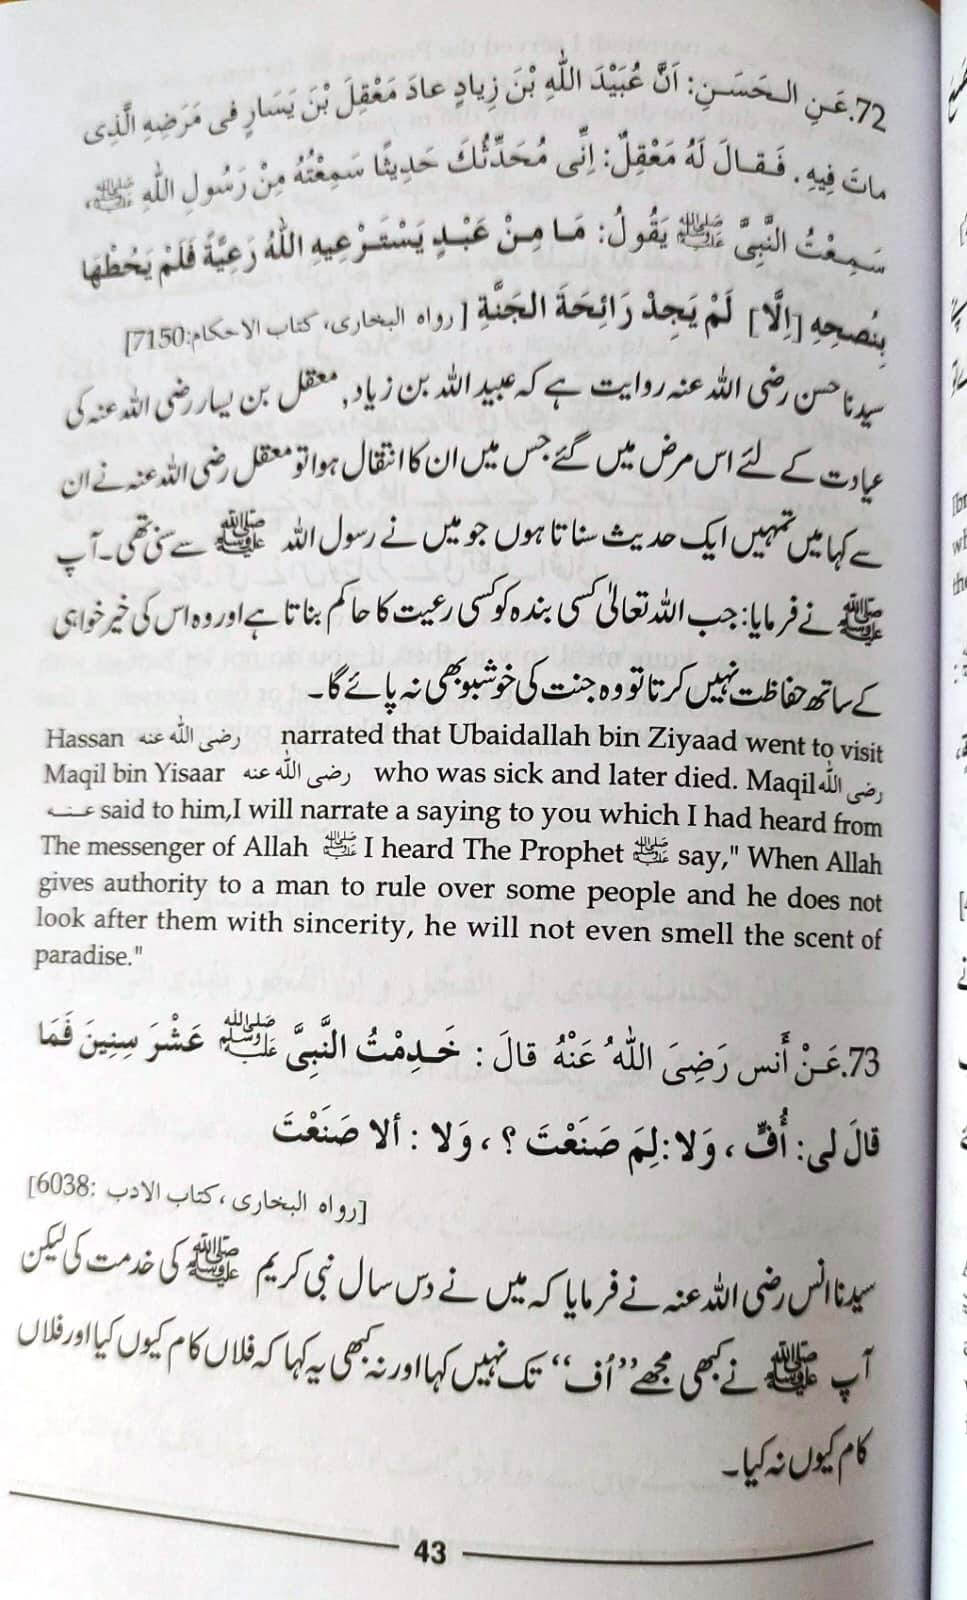 72.عَنِ الـحَسَـنِ: اَنَّ عُبَيْدَ اللّٰهِ بْنَ زِيادٍ عادَ مَعْقِلَ بْنَ يَسَارٍ فى مَرَضِهِ الَّذِى
ماتَ فِيهِ. فَـقـالَ لَهُ مَعْقِلٌ: اِنِّى مُحَدِّثُكَ حَدِيثًا سَمِعْتُهُ مِنْ رَسُولِ اللّٰهِ ﷺ،
سَـمِـعْتُ النَّبِىَّ ﷺ يَقُولُ: مَـا مِـنْ عَبْـدٍ يَسْتَـرْعِيهِ اللّٰهُ رَعِيَّةً فَلَمْ يَحُطْهَا
بِنُصحِهِ [اِلَّا] لَمْ يَجِدْ رَائِحَةَ الـجَنَّةِ [رواه البخارى، كتاب الاحكام:7150]
سیدنا حسن رضی اللہ عنہ روایت ہے کہ عبید اللہ بن زیاد, معقل بن یسار رضی اللہ عنہ کی
عیادت کے لئے اس مرض میں گئے جس میں ان کا انتقال ہوا تو معقل رضی اللہ عنہ نے ان
سے کہا میں تمہیں ایک حدیث سناتا ہوں جو میں نے رسول اللہ ﷺ سے سنی تھی۔ آپ
ﷺ نے فرمایا: جب اللہ تعالیٰ کسی بندہ کو کسی رعیت کا حاکم بناتا ہے اور وہ اس کی خیر خواہی
کے ساتھ حفاظت نہیں کرتا تو وہ جنت کی خوشبو بھی نہ پائے گا۔
Hassan رضى الله عنه narrated that Ubaidallah bin Ziyaad went to visit
Maqil bin Yisaar رضى الله عنه who was sick and later died. Maqil رضى الله
عنـه said to him,I will narrate a saying to you which I had heard from
The messenger of Allah ﷺ I heard The Prophet ﷺ say," When Allah
gives authority to a man to rule over some people and he does not
look after them with sincerity, he will not even smell the scent of
paradise."
73.عَـنْ أَنس رَضِىَ اللّٰهُ عَنْهُ قالَ : خَـدِمْتُ النَّبِىَّ ﷺ عَشْرَ سِنِينَ فَمَا
قالَ لى: أُفٍّ ، وَلا:لِمَ صَنَعْتَ ؟ ، وَلا : ألا صَنَعْتَ
[رواه البخارى ، كتاب الادب :6038]
سیدنا انس رضی اللہ عنہ نے فرمایا کہ میں نے دس سال نبی کریم ﷺ کی خدمت کی لیکن
آپ ﷺ نے کبھی مجھے ”اُف“ تک نہیں کہا اور نہ کبھی یہ کہا کہ فلاں کام کیوں کیا اور فلاں
کام کیوں نہ کیا۔
43